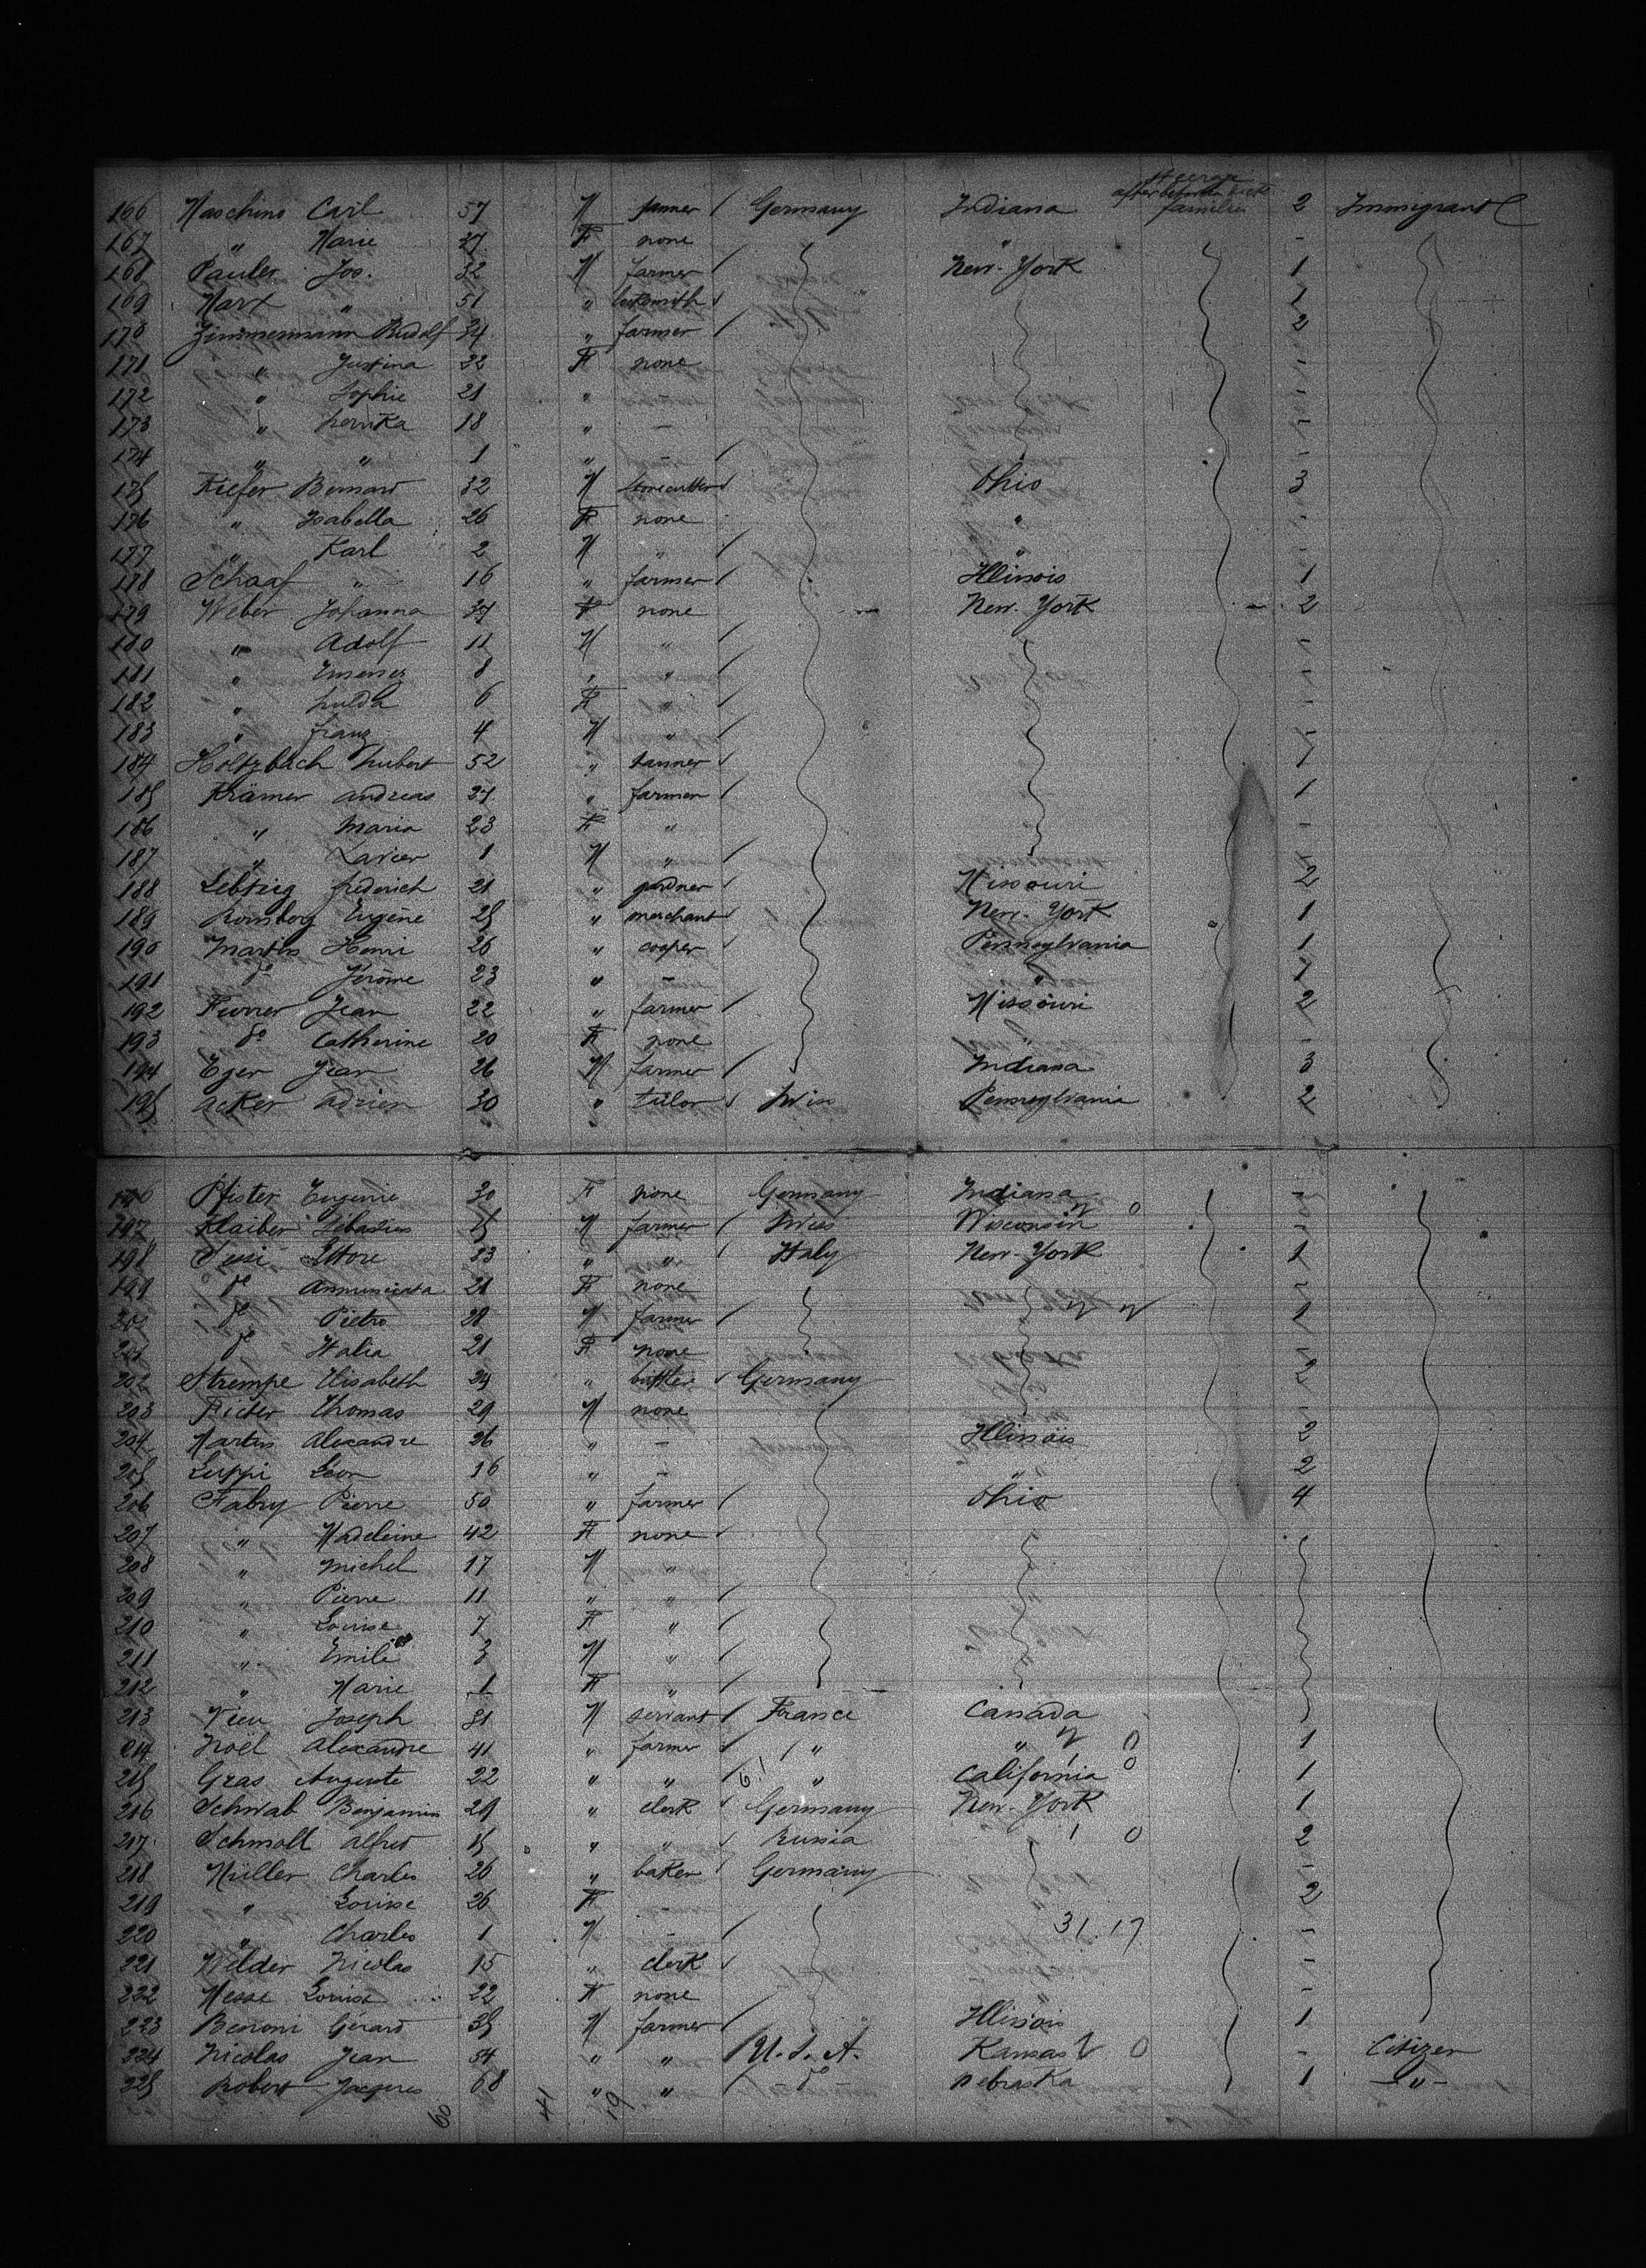 Steerage
after between deck
166 Maschino Carl 57 M farmer / Germany Indiana families 2 Immigrant
167 " Marie 37 F none " -
168 Pauler Jos. 32 M farmer / New-York 1
169 Marx " 51 " locksmith / 1
170 Zimmermann Rudolf 34 " farmer / 2
171 " Justina 22 F none -
172 " Sophie 21 " -
173 " 18 " - -
174 " " 1 " - / -
175 Kiefer Bernard 32 M stonecutter / Ohio 3
176 " Isabella 26 F none " -
177 " Karl 2 M " / " -
178 Schaaf " 16 " farmer / Illinois 1
179 Weber Johanna 37 F none New-York 2
180 " Adolf 11 M " / -
181 " 8 " " / -
182 " hulda 6 F " / -
183 " franz 4 M " / -
184 Holtzbach hubert 52 " tanner / 1
185 Krämer andreas 27 " farmer / 1
186 " Maria 23 F " -
187 " Xavier 1 M " / -
188 frederich 21 " gardner / Missouri 2
189 Romberg Eugène 25 " merchant / New-York 1
190 Martin Henri 26 " cooper / Pennsylvania 1
191 do Jérôme 23 " - " 1
192 Furrer Jean 22 " farmer / Missouri 2
193 do Catherine 20 F none " -
194 Eger Jean 26 M farmer / Indiana 3
195 Acker Adrien 30 " tailor / Swiss Pennsylvania 2
196 Pfister Eugenie 30 F none Germany Indiana -
197 Klaiber Sébastien 15 M farmer / Swiss Wisconsin -
198 Ettore 33 " " / Italy New-York 1
199 do Annunciata 21 F none -
200 do Pietro 28 M farmer / 1
201 do Italia 21 F none -
202 Strempe Elisabeth 24 " / Germany 2
203 Thomas 29 M none -
204 Martin Alexandre 26 " - Illinois 2
205 Luppi Leon 16 " - " 2
206 Fabry Pierre 50 " farmer / Ohio 4
207 " Madeleine 42 F none /
208 " Michel 17 M "
209 " Pierre 11 " " /
210 " Louise 7 F " /
211 " Emile 3 M " /
212 " Marie 1 F " /
213 Joseph 31 M servant / France Canada
214 Noël Alexandre 41 " farmer / " " 1
215 Gras Auguste 22 " " / " California 1
216 Schwab Benjamin 29 " clerk / Germany New-York 1
217 Schmoll Alfred 15 " " / Russia 2
218 Müller Charles 26 " baker / Germany -
219 " Louise 26 F 2
220 " Charles 1 M - / 31.17 -
221 Welder Nicolas 15 " clerk / -
222 Hesse Louise 22 F none -
223 Beroni Gérard 35 M farmer / Illinois 1
224 Nicolas Jean 54 " " / U.S.A. Kansas - Citizen
225 Robert Jacques 68 " " / - do - Nebraska 1 - " -
60 41 19